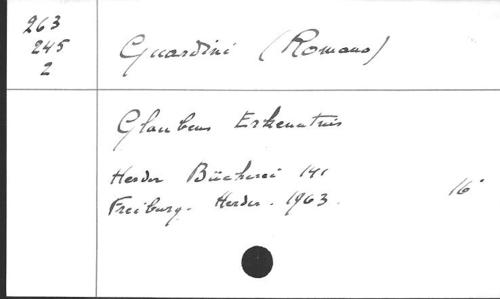 263
245
2
Guardini (Romano)
Glaubens Erkenntnis
Herder Bücherei 141
Freiburg. Herder. 1963. 16°